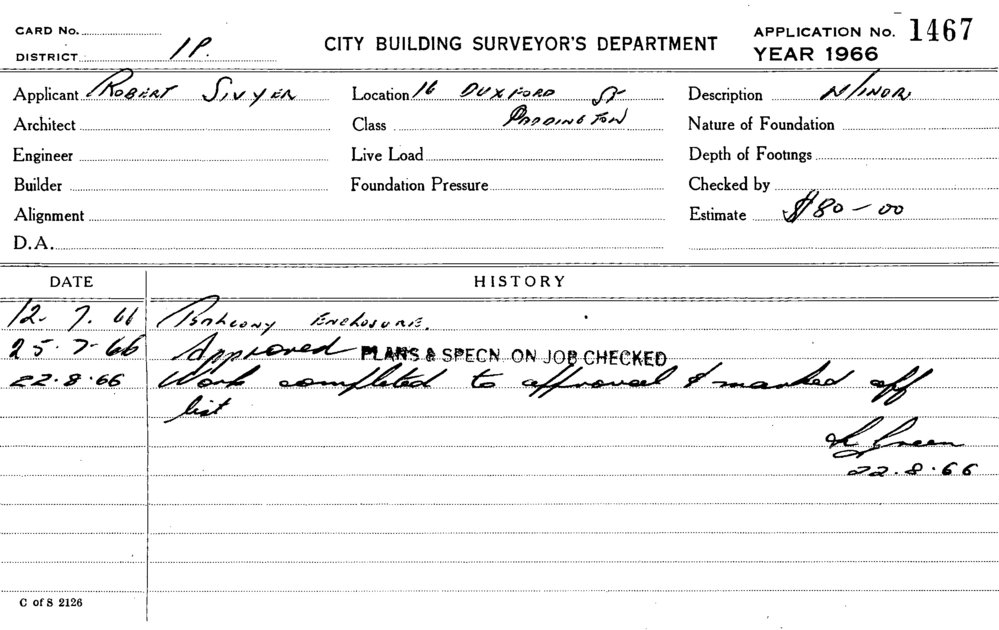 CARD No.
DISTRICT 1P.
CITY BUILDING SURVEYOR'S DEPARTMENT
APPLICATION No. 1467
YEAR 1966
Applicant ROBERT SIVYER Location 16 DUXFORD ST Description MINOR
Architect Class PADDINGTON Nature of Foundation
Engineer Live Load Depth of Footings
Builder Foundation Pressure Checked by
Alignment Estimate $80-00
D.A.
DATE HISTORY
12. 7. 66 Balcony Enclosure.
25-7-66 Approved PLANS & SPECN. ON JOB CHECKED
22.8.66 Work completed to approval & marked off
list
Green
22.8.66
C of S 2126